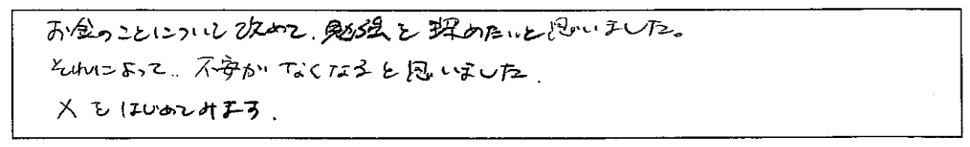 お金のことについて改めて、勉強を深めたいと思いました。
それによって、不安がなくなると思いました。
Xをはじめてみます。